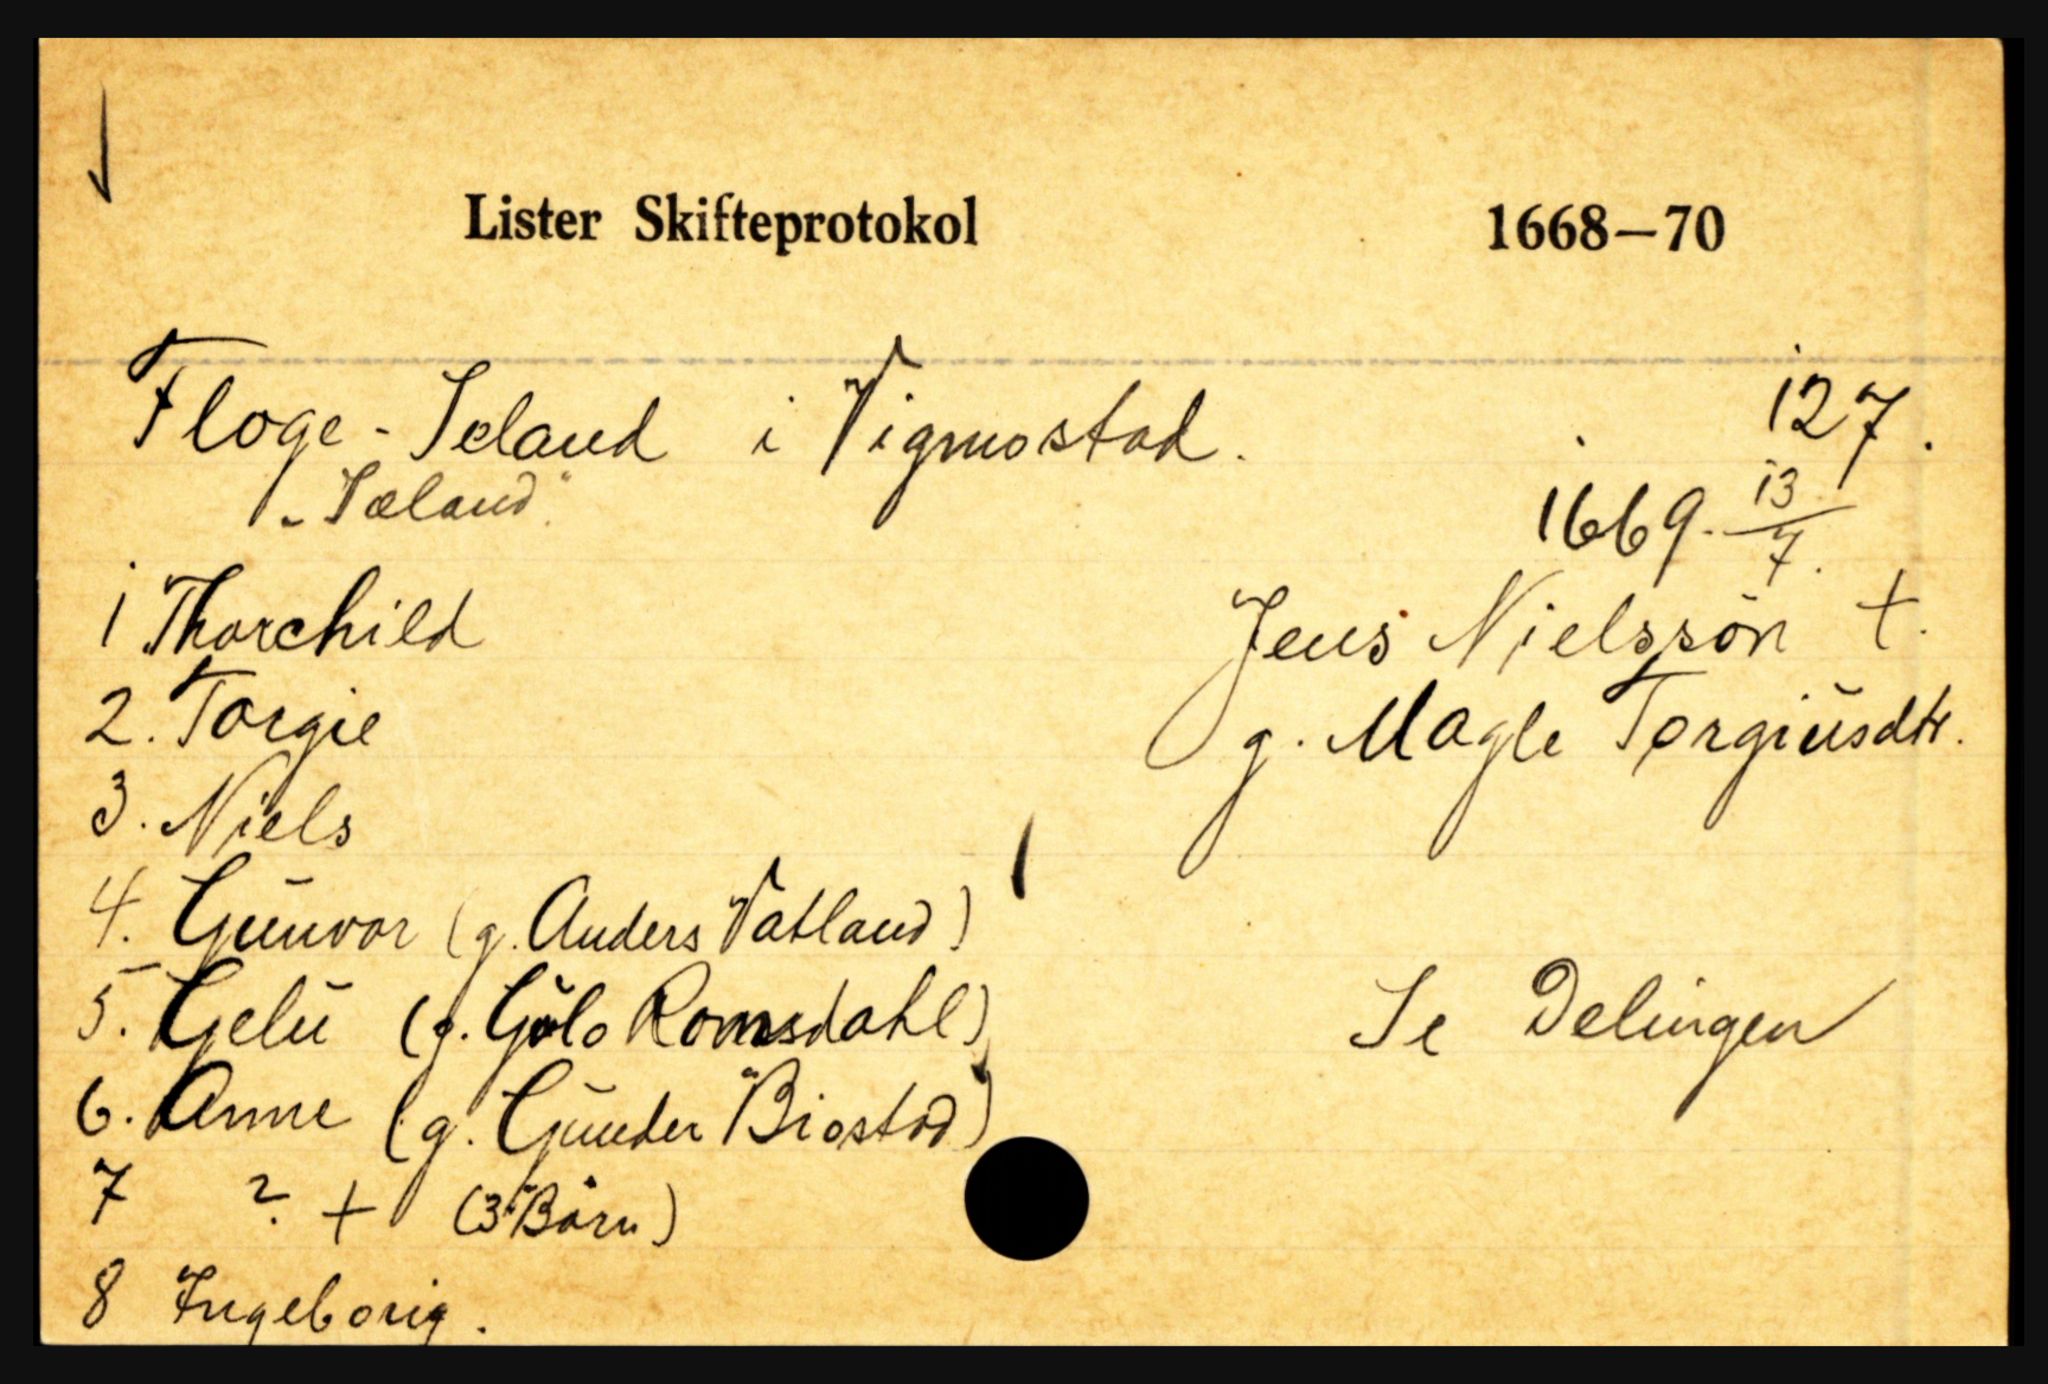 Lister Skifteprotokol 1668–70
Floge - Seland i Vigmostad. 127.
"Sæland" 1669. 13/7.
1 Thorchild Jens Nielssön +.
2. Torgie g. Magle Torgiusdtr.
3. Niels
4. Gunvor (g. Anders Vatland)
5. Gelü (g. Golo Romsdahl) Se Delingen
6. Anne (g. Gunder Biostad)
7 ? + (3 Börn)
8 Ingeborig.